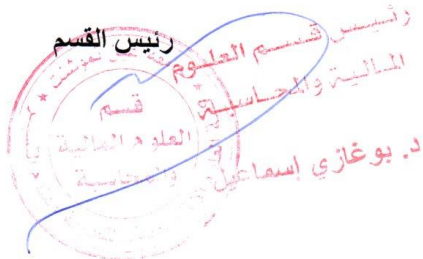 رئيس القسم
رئيس قسم العلوم
المالية والمحاسبة
د. بوغازي إسماعيل
قسم
العلوم المالية
والمحاسبة